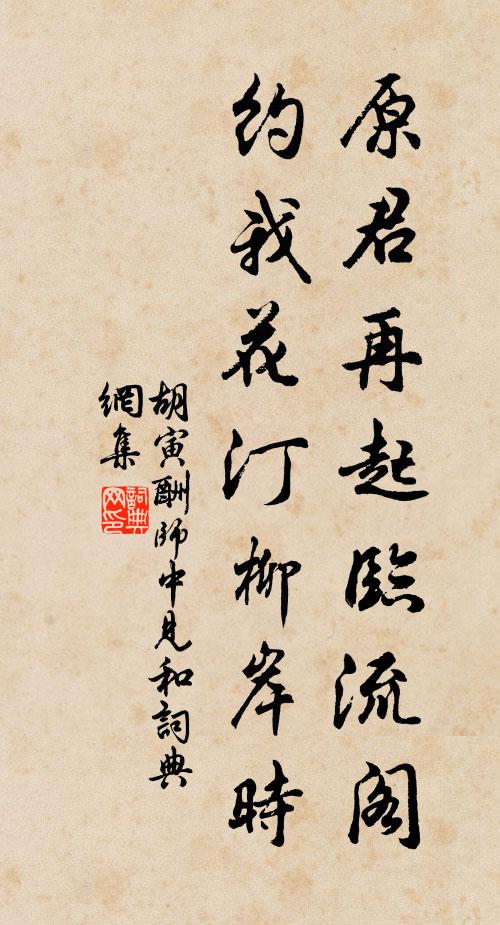 原君再起臨流阁
約我花汀柳岸時
胡寅酬師中見和詞典
網集
詞典网印